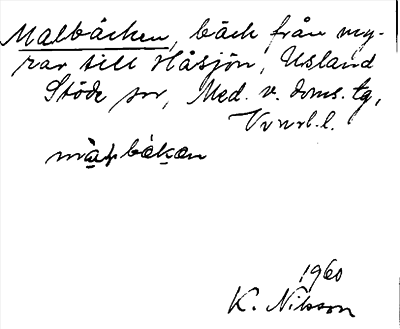 Malbäcken, bäck från my-
rar till Håsjön, Usland
Stöde sn, Med. v. doms. tg,
Vvnrl. l.
màḷbäkan
1960
K. Nilsson